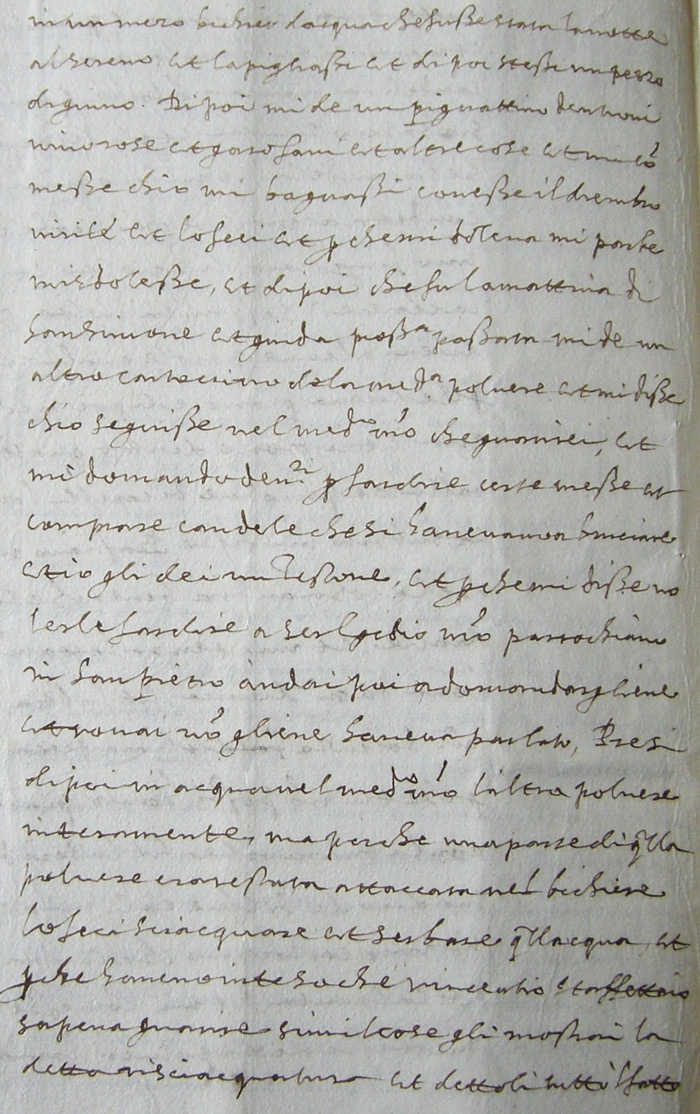 in un mezo bichier d acqua che fusse stata la notte
al sereno et la pigliassi et di poi stessi un pezzo
digiuno. Di poi mi de un pignattino dentrovi
vino rose et garofani et altre cose et mi cō
messe chio mi bagnassi con esse il membro
virile et lo feci et p che mi doleva mi parbe
mi si dolesse, et di poi che fu la mattina di
San Simone et giuda pross.a passata mi de un
altro cartoccino de la med.a polvere et mi disse
chio seguisse nel med.o mō che guarirei, et
mi domandò den.ri p far dire certe messe et
comprare candele che si havevano a bruciare
et io gli dei un Testone, et p che mi disse vo
lerle far dire a ser Egidio nr̄o parrochiano
in San Pietro andai poi a domandargliene
et trovai nō gliene haveva parlato, Presi
di poi in acqua nel med.o mō l altra polvere
interamente, ma perche una parte di q̄lla
polvere era restata attaccata nel bichiere
lo feci sciacquare et serbare q̄ll acqua, et
p che havevo inteso che vincentio staffettaio
sapeva guarire simil cose gli mostrai la
detta risciacquatura et dettoli tutto il fatto